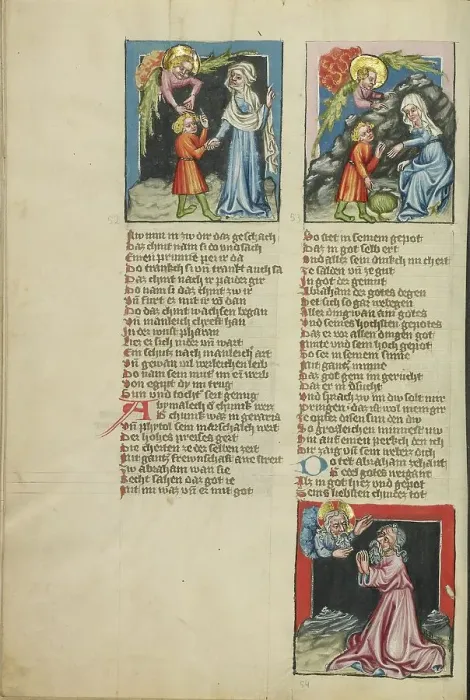 Nw nim in zv dir daz geschach
Daz chint nam si do vnd sach
Einen prunne per ir da
Do trankch si vn trankt auch sa
Daz chint nach ir paider gir
Do nam si daz chint zv ir
Vn furt ez mit ir vō dan
Do daz chint wachsen began
Vn manleich chreft han
In der wust pharan
er sich nider vn wart
Ein schutz nach manleich art
Vn gewan leib
Do nam sein mut im ein weib
Von egipt dy im trug
Sun vnd tocht seit genug
Abymalech d chunich
waz in gerarra
Vn phytol sein marschalch
Der hohes preises gert
Die cherten ze der selben zeit
Mit gantz frewntschaft ane streit
Zv abraham wan sie
Recht sahen daz got ie
Mit im waz vn er mit got
So stet in seinem gepot
Daz in got selb ert
Vnd aller sein dinkch
Ze salden vn ze gut
In got der gemut
Abraham der gotes degen
Het sich so gar
Aller ding wan an gotes
Vnd seines hochsten gepotes
Daz er vor allen dingen got
Minte vnd sein hoch gepot
So ser in seinem sinne
Mit gantz minne
Daz got gern in
Daz er in v'sucht
Vnd sprach zv im dw solt mir
Pringen daz ist wol mein gir
Ze opfer disen sun den dw
So
Mir auf einen perkch den ich
Dir zaig vn sein
Do tet abraham zehant
gotes
Alz in got hiez vnd gepot
Seins liebsten chindez tot
52
53
54